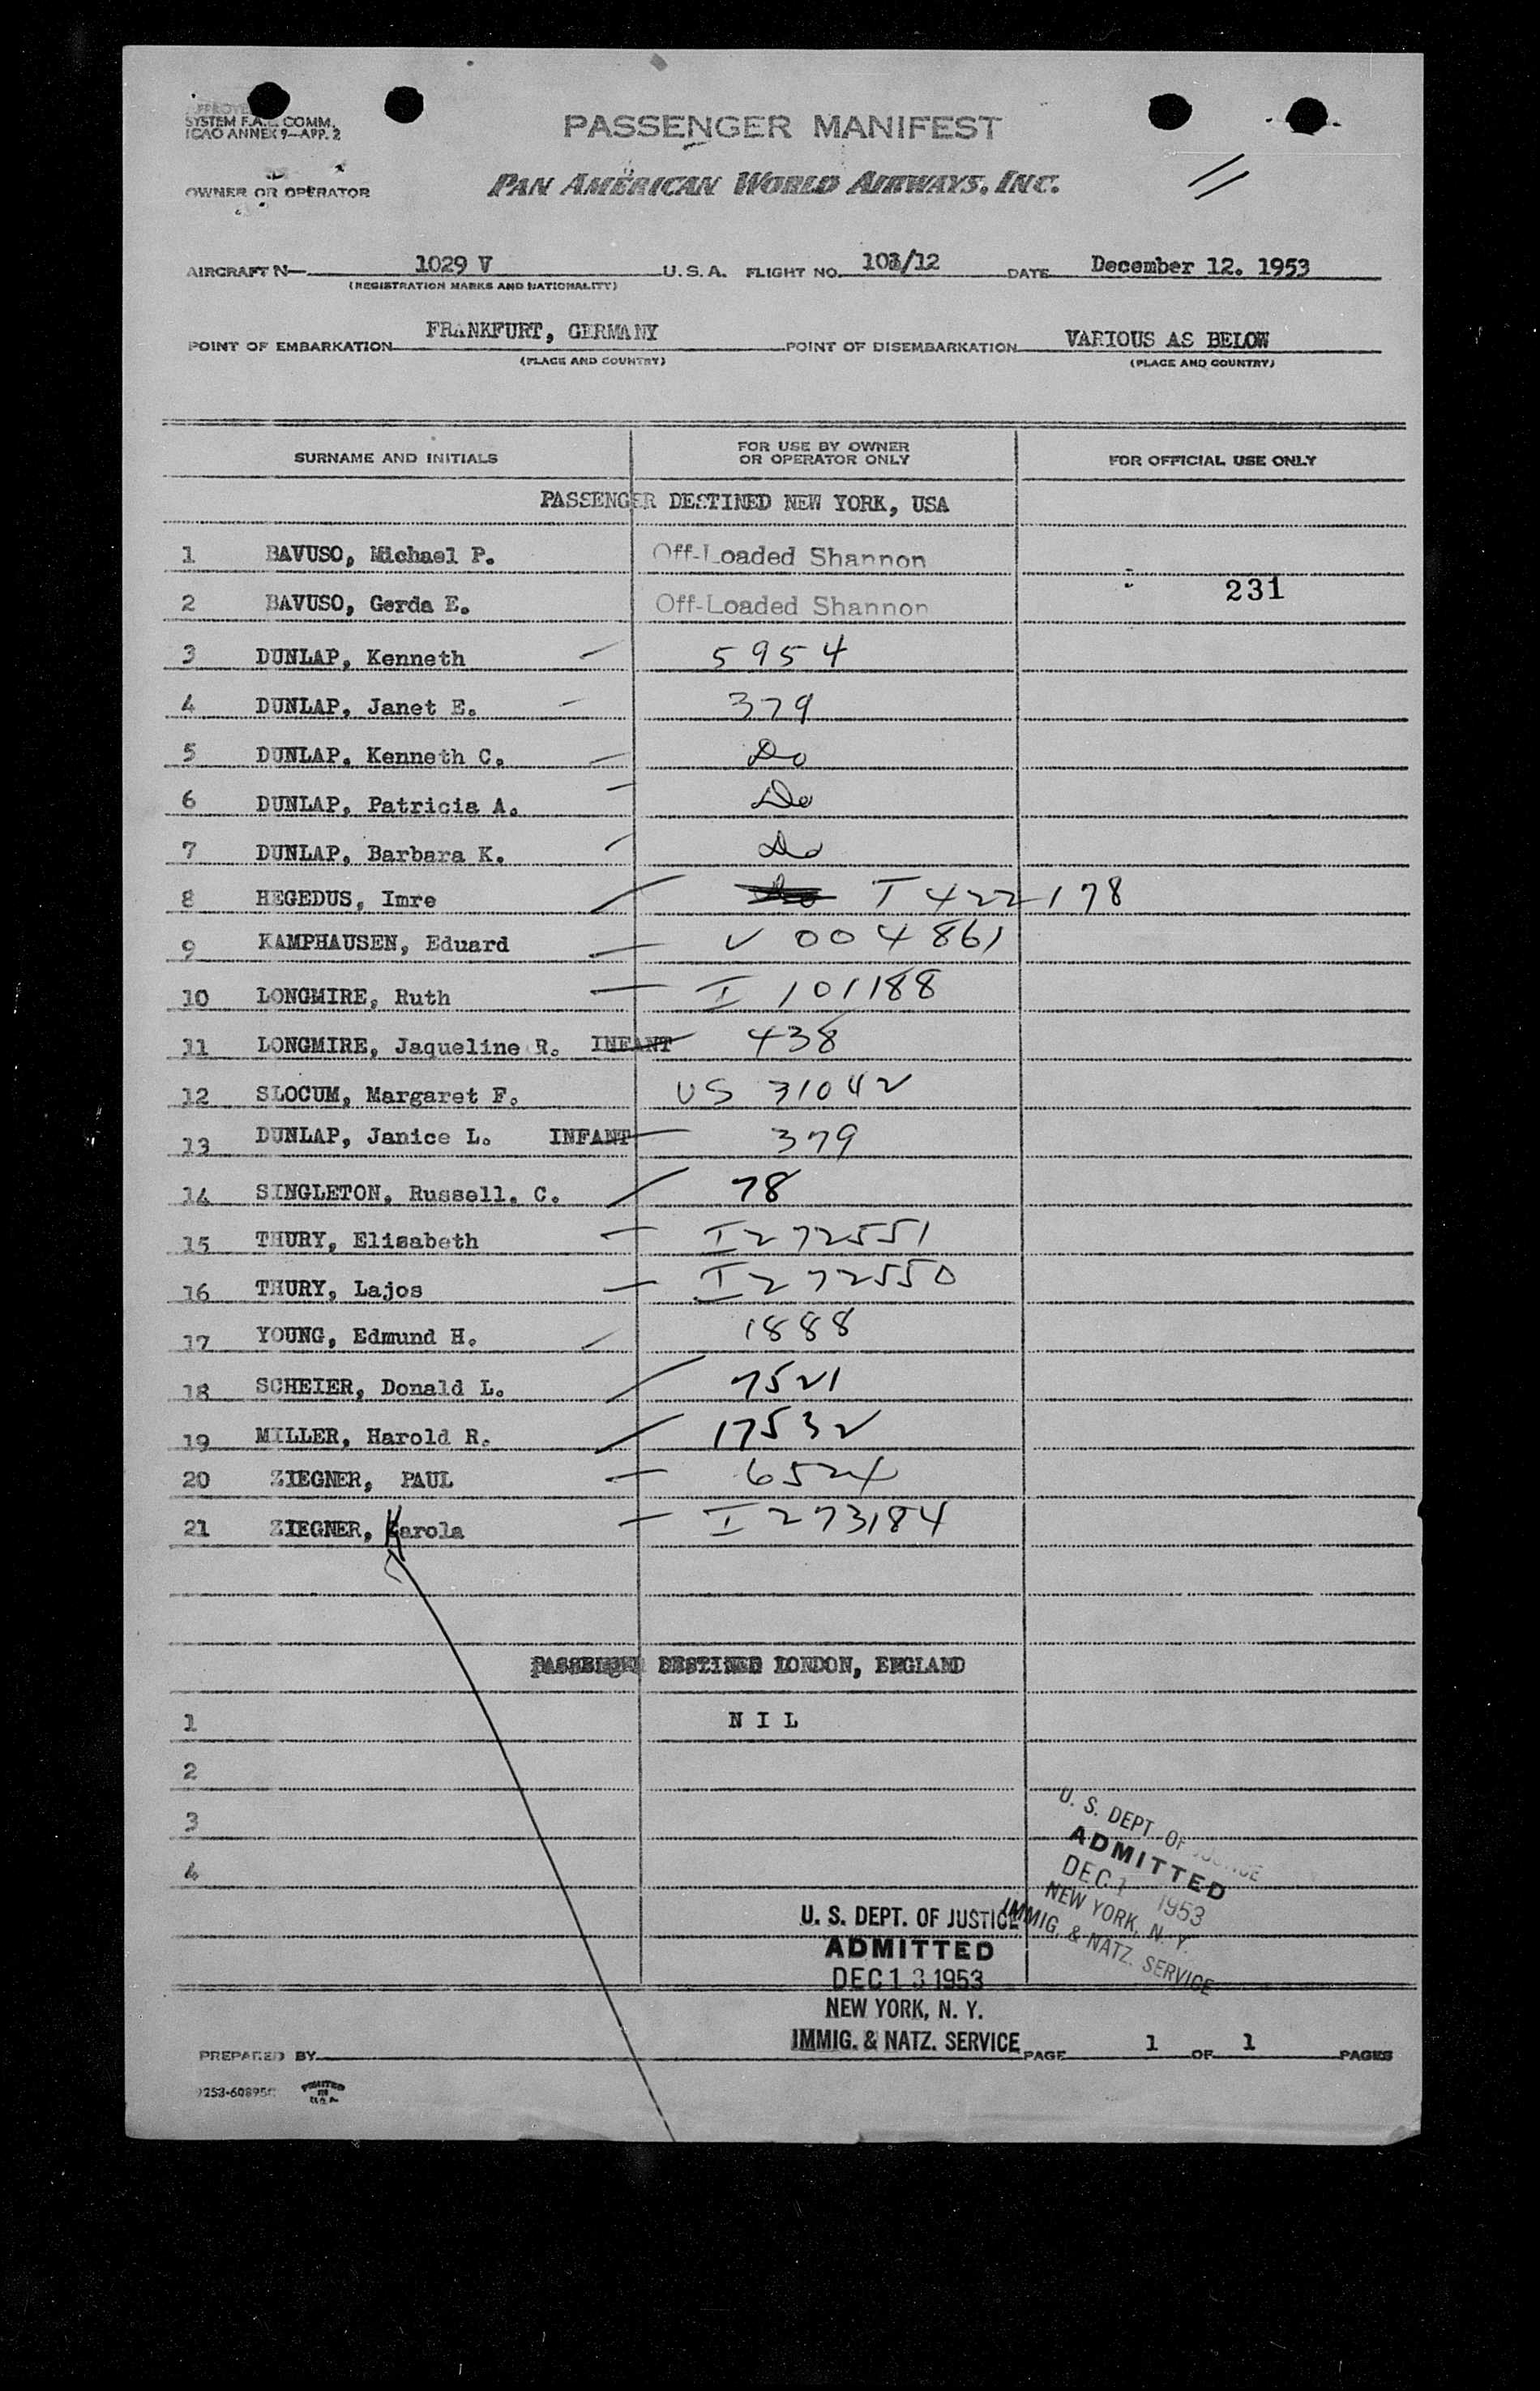 SYSTEM F.A.L. COMM.
ICAO ANNEX 9—APP. 2
PASSENGER MANIFEST
OWNER OR OPERATOR PAN AMERICAN WORLD AIRWAYS, INC.
AIRCRAFT N— 1029 V U.S.A. FLIGHT NO. /12 DATE December 12. 1953
(REGISTRATION MARKS AND NATIONALITY)
POINT OF EMBARKATION FRANKFURT, GERMANY POINT OF DISEMBARKATION VARIOUS AS BELOW
(PLACE AND COUNTRY) (PLACE AND COUNTRY)
SURNAME AND INITIALS FOR USE BY OWNER OR OPERATOR ONLY FOR OFFICIAL USE ONLY
PASSENGER DESTINED NEW YORK, USA
1 BAVUSO, Michael P. Off-Loaded Shannon
231
2 BAVUSO, Gerda E. Off-Loaded Shannon
3 DUNLAP, Kenneth 5954
4 DUNLAP, Janet E. 379
5 DUNLAP, Kenneth C. Do
6 DUNLAP, Patricia A. Do
7 DUNLAP, Barbara K. Do
8 HEGEDUS, Imre Do T 422178
9 KAMPHAUSEN, Eduard V 004861
10 LONGMIRE, Ruth I 101188
11 LONGMIRE, Jaqueline R. INFANT 438
12 SLOCUM, Margaret F. US 31042
13 DUNLAP, Janice L. INFANT 379
14 SINGLETON, Russell. C. 78
15 THURY, Elisabeth I 272551
16 THURY, Lajos I 272550
17 YOUNG, Edmund H. 1888
18 SCHEIER, Donald L. 7521
19 MILLER, Harold R. 17532
20 ZIEGNER, PAUL 6524
21 ZIEGNER, Karola I 273184
PASSENGER DESTINED LONDON, ENGLAND
1 N I L
2
3
4
U. S. DEPT. OF JUSTICE
ADMITTED
DEC 1 1953
NEW YORK, N. Y.
IMMIG. & NATZ. SERVICE
U. S. DEPT. OF JUSTICE
ADMITTED
DEC 13 1953
NEW YORK, N. Y.
IMMIG. & NATZ. SERVICE
PREPARED BY PAGE 1 OF 1 PAGES
PRINTED IN U.S.A.